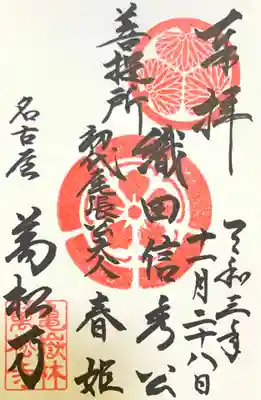 奉拝
令和三年
十一月二十八日
織田信秀公
菩提所
初代尾張公夫人 春姫
名古屋
萬松寺
亀嶽林
萬松寺